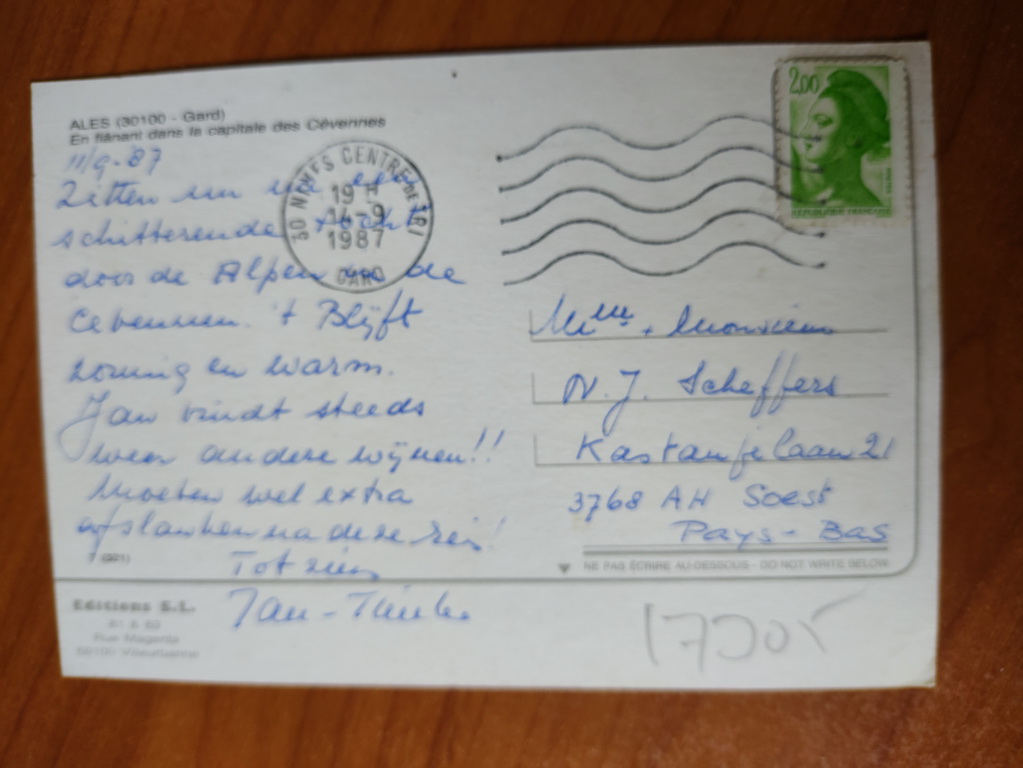 ALES (30100 - Gard)
En flânant dans la capitale des Cévennes
11/9-'87
Zitten nu na een
schitterende tocht
door de Alpen in de
Cevennen. 't Blijft
zonnig en warm.
Jan vindt steeds
weer andere wijnen!!
Moeten wel extra
afslanken na deze reis!
Tot ziens
Jan -
7 (921)
Editions E.L.
61 & 63
Rue Magenta
69100 Villeurbanne
30 NIMES CENTRE DE TRI
19 H
14-9
1987
GARD
2,00
REPUBLIQUE FRANCAISE
Mme + Monsieur
N. J. Scheffers
Kastanjelaan 21
3768 AH Soest
Pays-Bas
NE PAS ÉCRIRE AU-DESSOUS - DO NOT WRITE BELOW